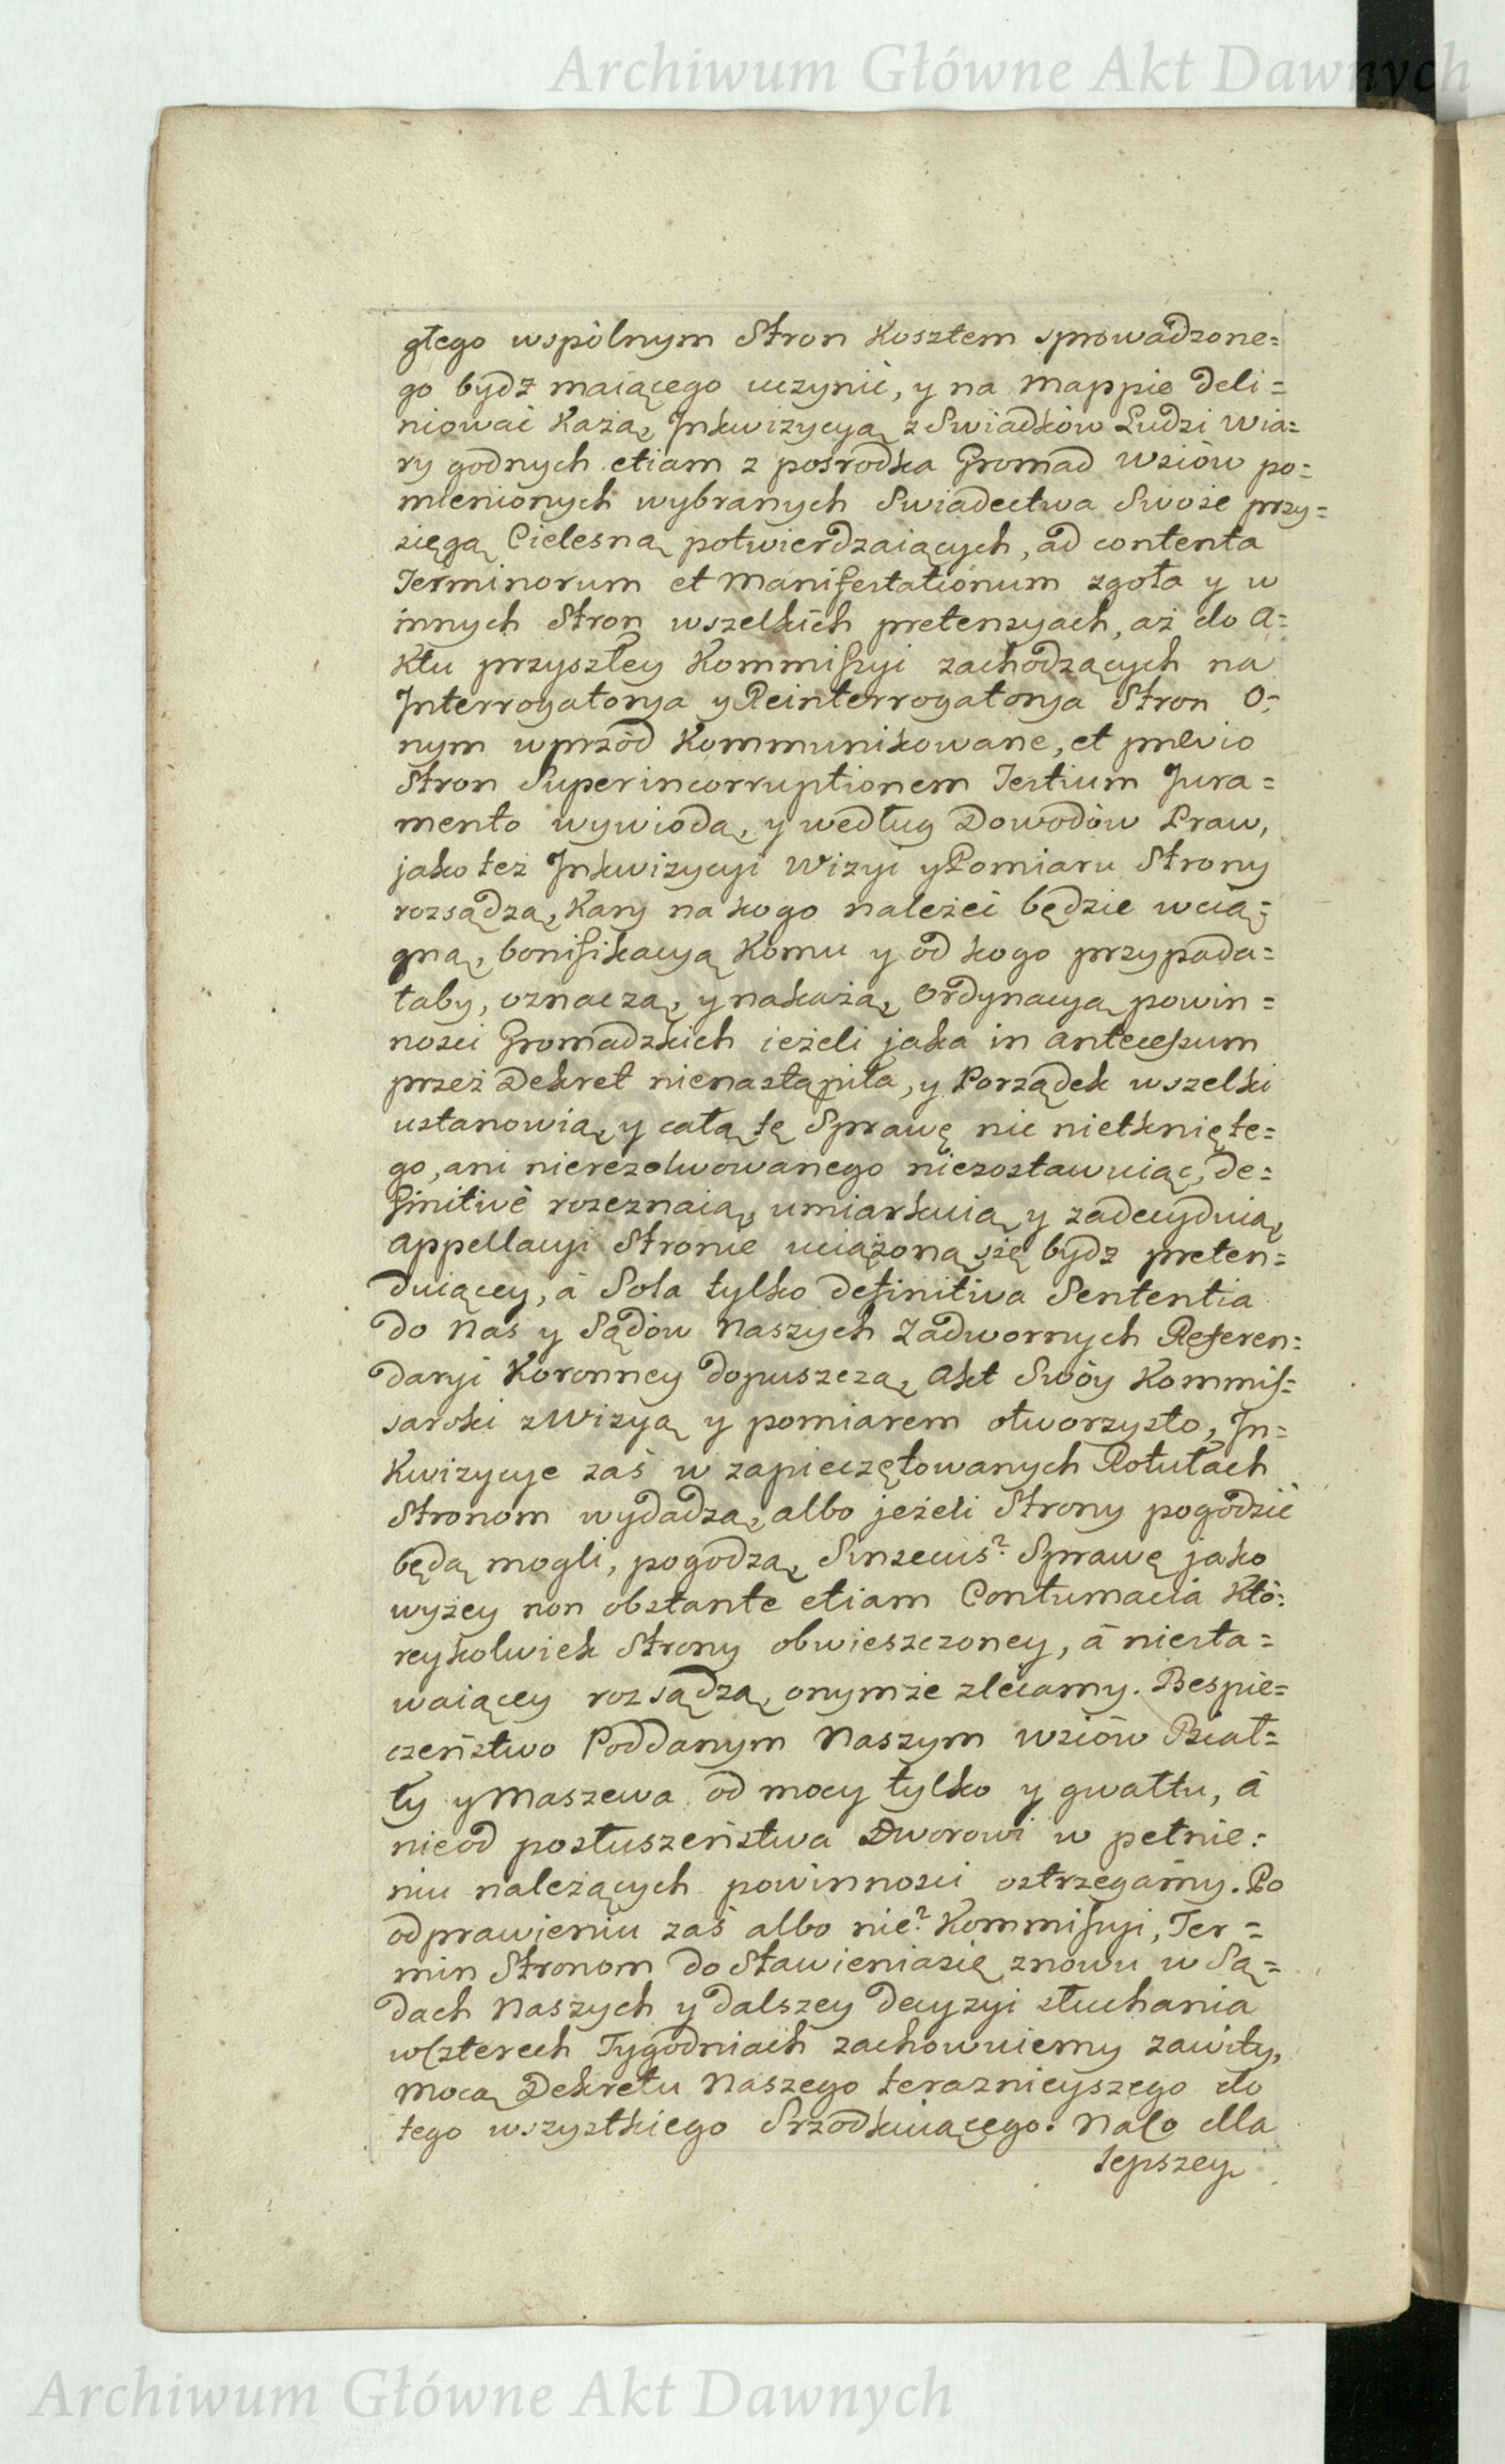 Archiwum Główne Akt Dawnych
głego wspólnym Stron Kosztem sprowadzone=
go bydź maiącego uczynić, y na Mappie deli=
niować Każą, Inkwizycyą z Swiadków Ludzi Wia=
ry godnych etiam z posrodka Gromad Wsiów po=
mienionych wybranych Swiadectwa Swoie przy=
sięgą Cielesną potwierdzaiących, ad contenta
Terminorum et Manifestationum zgoła y w
innych Stron wszelkich pretensyach, aż do A=
Ktu przyszłey Kommissyi zachodzących na
Interrogatorya y Reinterrogatorya Stron O=
nym wprzód Kommunikowane, et prævio
Stron Super incorruptionem Testium Jura=
mento wywiodą, y według Dowodów Praw,
jako też Inkwizycyi Wizyi y Pomiaru Strony
rozsądzą, Kary na kogo należeć będzie wcią=
gną, bonifikacyą Komu y od kogo przypada=
łaby, oznaczą, y nakażą, Ordynacyą powin=
nosci Gromadzkich ieżeli jaka in antecessum
przez Dekret nienastąpiła, y Porządek wszelki
ustanowią, y całą tę Sprawę nic nietknięte=
go, ani nierezolwowanego niezostawuiąc, de=
finitivè rozeznaią, umiarkuią y zadecyduią,
Appellacyi Stronie uciążoną się bydz preten=
duiącey, à Sola tylko definitiva Sententia
do Nas y Sądów Naszych Zadwornych Referen=
daryi Koronney dopuszczą, Akt Swóy Kommis=
sarski z Wizyą y pomiarem otworzysto, In=
Kwizycye zaś w zapieczętowanych Rotułach
Stronom wydadzą, albo jeżeli Strony pogodzić
będą mogli, pogodzą, Sinsecus? Sprawę jako
wyżey non obstante etiam Contumacia Któ=
reykolwiek Strony obwieszczoney, á niesta=
waiącey rozsądzą, onymże zlecamy. Bespie=
czeństwo Poddanym Naszym wsiów Biał=
ły y Maszewa od mocy tylko y gwałtu, á
nieod posłuszeństwa Dworowi w pełnie=
niu należących powinnosci ostrzegamy. Po
odprawieniu zaś albo nie? Kommissyi, Ter=
min Stronom do Stawieniasię znowu w Są=
dach Naszych y dalszey decyzyi słuchania
w Czterech Tygodniach zachowuiemy zawity,
Mocą Dekretu Naszego teraznieyszego do
tego wszystkiego Srzodkuiącego. Na Co dla
lepszey
Archiwum Główne Akt Dawnych